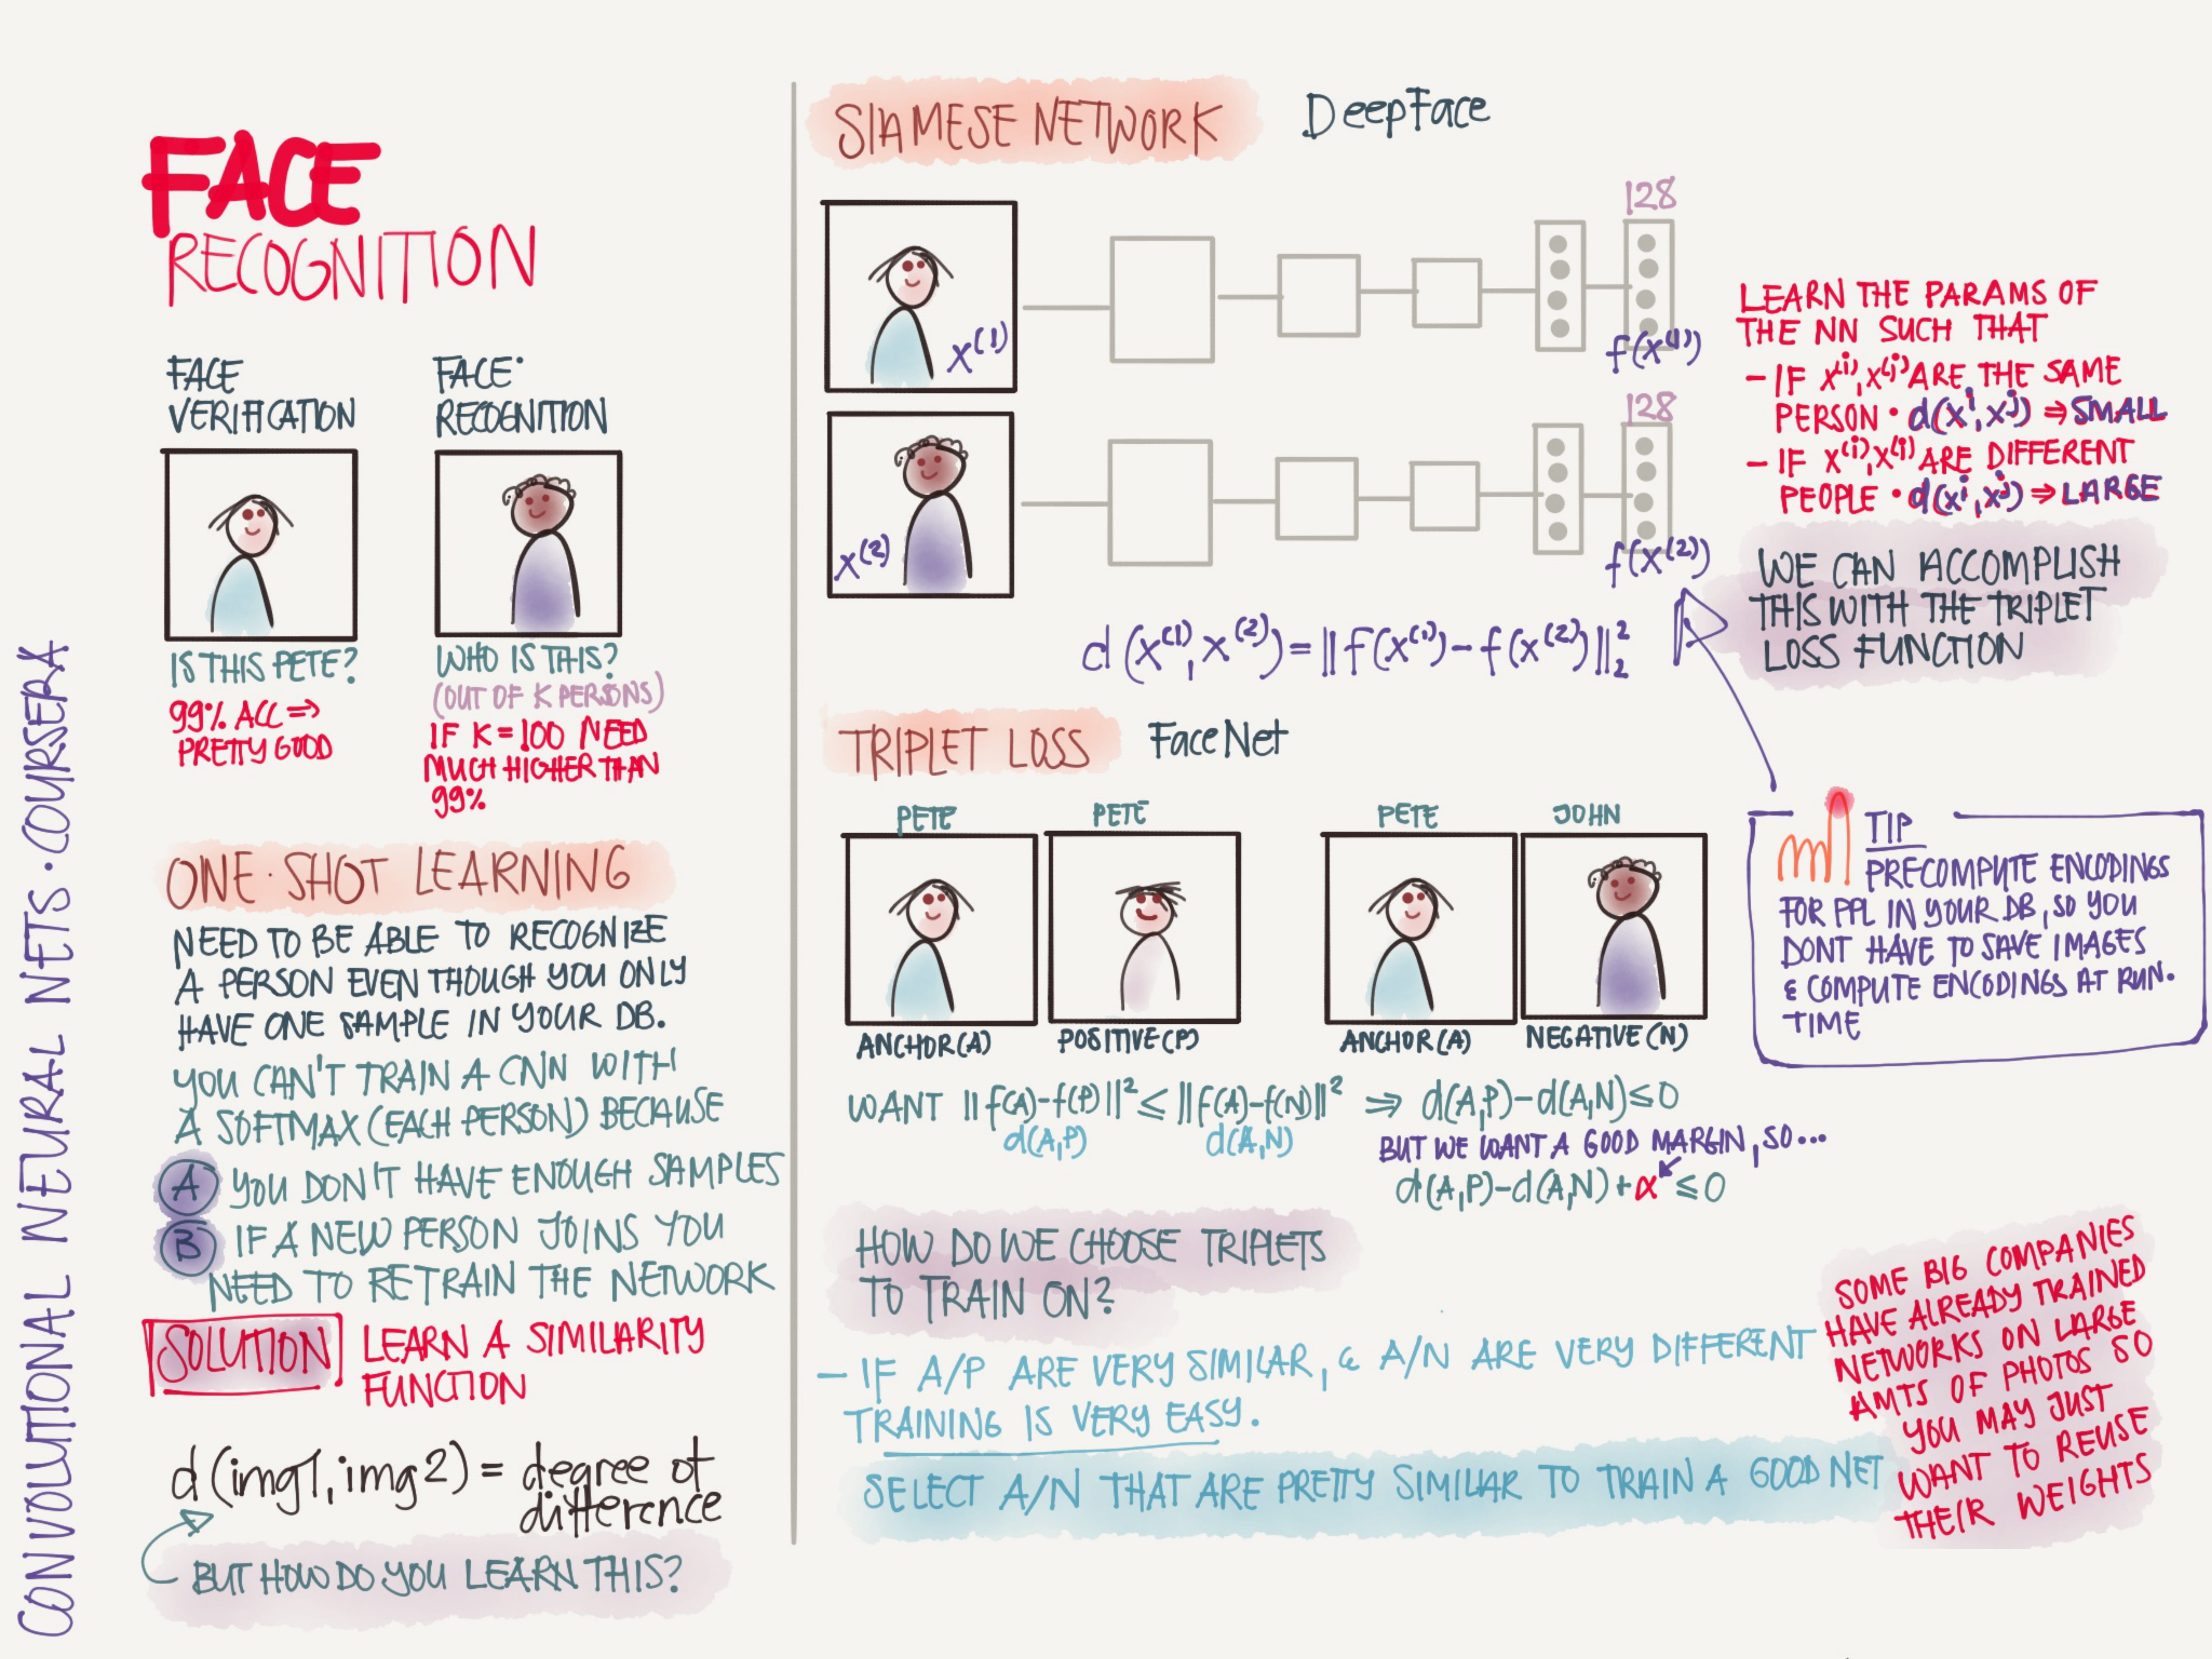 CONVOLUTIONAL NEURAL NETS · COURSERA
FACE
RECOGNITION
FACE
VERIFICATION
IS THIS PETE?
99% ACC ⇒
PRETTY GOOD
FACE·
RECOGNITION
WHO IS THIS?
(OUT OF K PERSONS)
IF K=100 NEED
MUCH HIGHER THAN
99%
ONE·SHOT LEARNING
NEED TO BE ABLE TO RECOGNIZE
A PERSON EVEN THOUGH YOU ONLY
HAVE ONE SAMPLE IN YOUR DB.
YOU CAN'T TRAIN A CNN WITH
A SOFTMAX (EACH PERSON) BECAUSE
A YOU DON'T HAVE ENOUGH SAMPLES
B IF A NEW PERSON JOINS YOU
NEED TO RETRAIN THE NETWORK
SOLUTION LEARN A SIMILARITY
FUNCTION
d(img1, img2) = degree of
difference
BUT HOW DO YOU LEARN THIS?
SIAMESE NETWORK DeepFace
128
x⁽¹⁾
f(x⁽¹⁾)
128
x⁽²⁾
f(x⁽²⁾)
d(x⁽¹⁾, x⁽²⁾) = ||f(x⁽¹⁾) - f(x⁽²⁾)||₂²
LEARN THE PARAMS OF
THE NN SUCH THAT
- IF x⁽ⁱ⁾, x⁽ʲ⁾ ARE THE SAME
PERSON · d(xⁱ, xʲ) ⇒ SMALL
- IF x⁽ⁱ⁾, x⁽ʲ⁾ ARE DIFFERENT
PEOPLE · d(xⁱ, xʲ) ⇒ LARGE
WE CAN ACCOMPLISH
THIS WITH THE TRIPLET
LOSS FUNCTION
TRIPLET LOSS FaceNet
PETE PETE PETE JOHN
ANCHOR (A) POSITIVE (P) ANCHOR (A) NEGATIVE (N)
WANT ||f(A)-f(P)||² ≤ ||f(A)-f(N)||² ⇒ d(A,P)-d(A,N) ≤ 0
d(A,P) d(A,N)
BUT WE WANT A GOOD MARGIN, SO...
d(A,P)-d(A,N)+α ≤ 0
TIP
PRECOMPUTE ENCODINGS
FOR PPL IN YOUR DB, SO YOU
DONT HAVE TO SAVE IMAGES
& COMPUTE ENCODINGS AT RUN.
TIME
HOW DO WE CHOOSE TRIPLETS
TO TRAIN ON?
- IF A/P ARE VERY SIMILAR, & A/N ARE VERY DIFFERENT
TRAINING IS VERY EASY.
SELECT A/N THAT ARE PRETTY SIMILAR TO TRAIN A GOOD NET
SOME BIG COMPANIES
HAVE ALREADY TRAINED
NETWORKS ON LARGE
AMTS OF PHOTOS SO
YOU MAY JUST
WANT TO REUSE
THEIR WEIGHTS